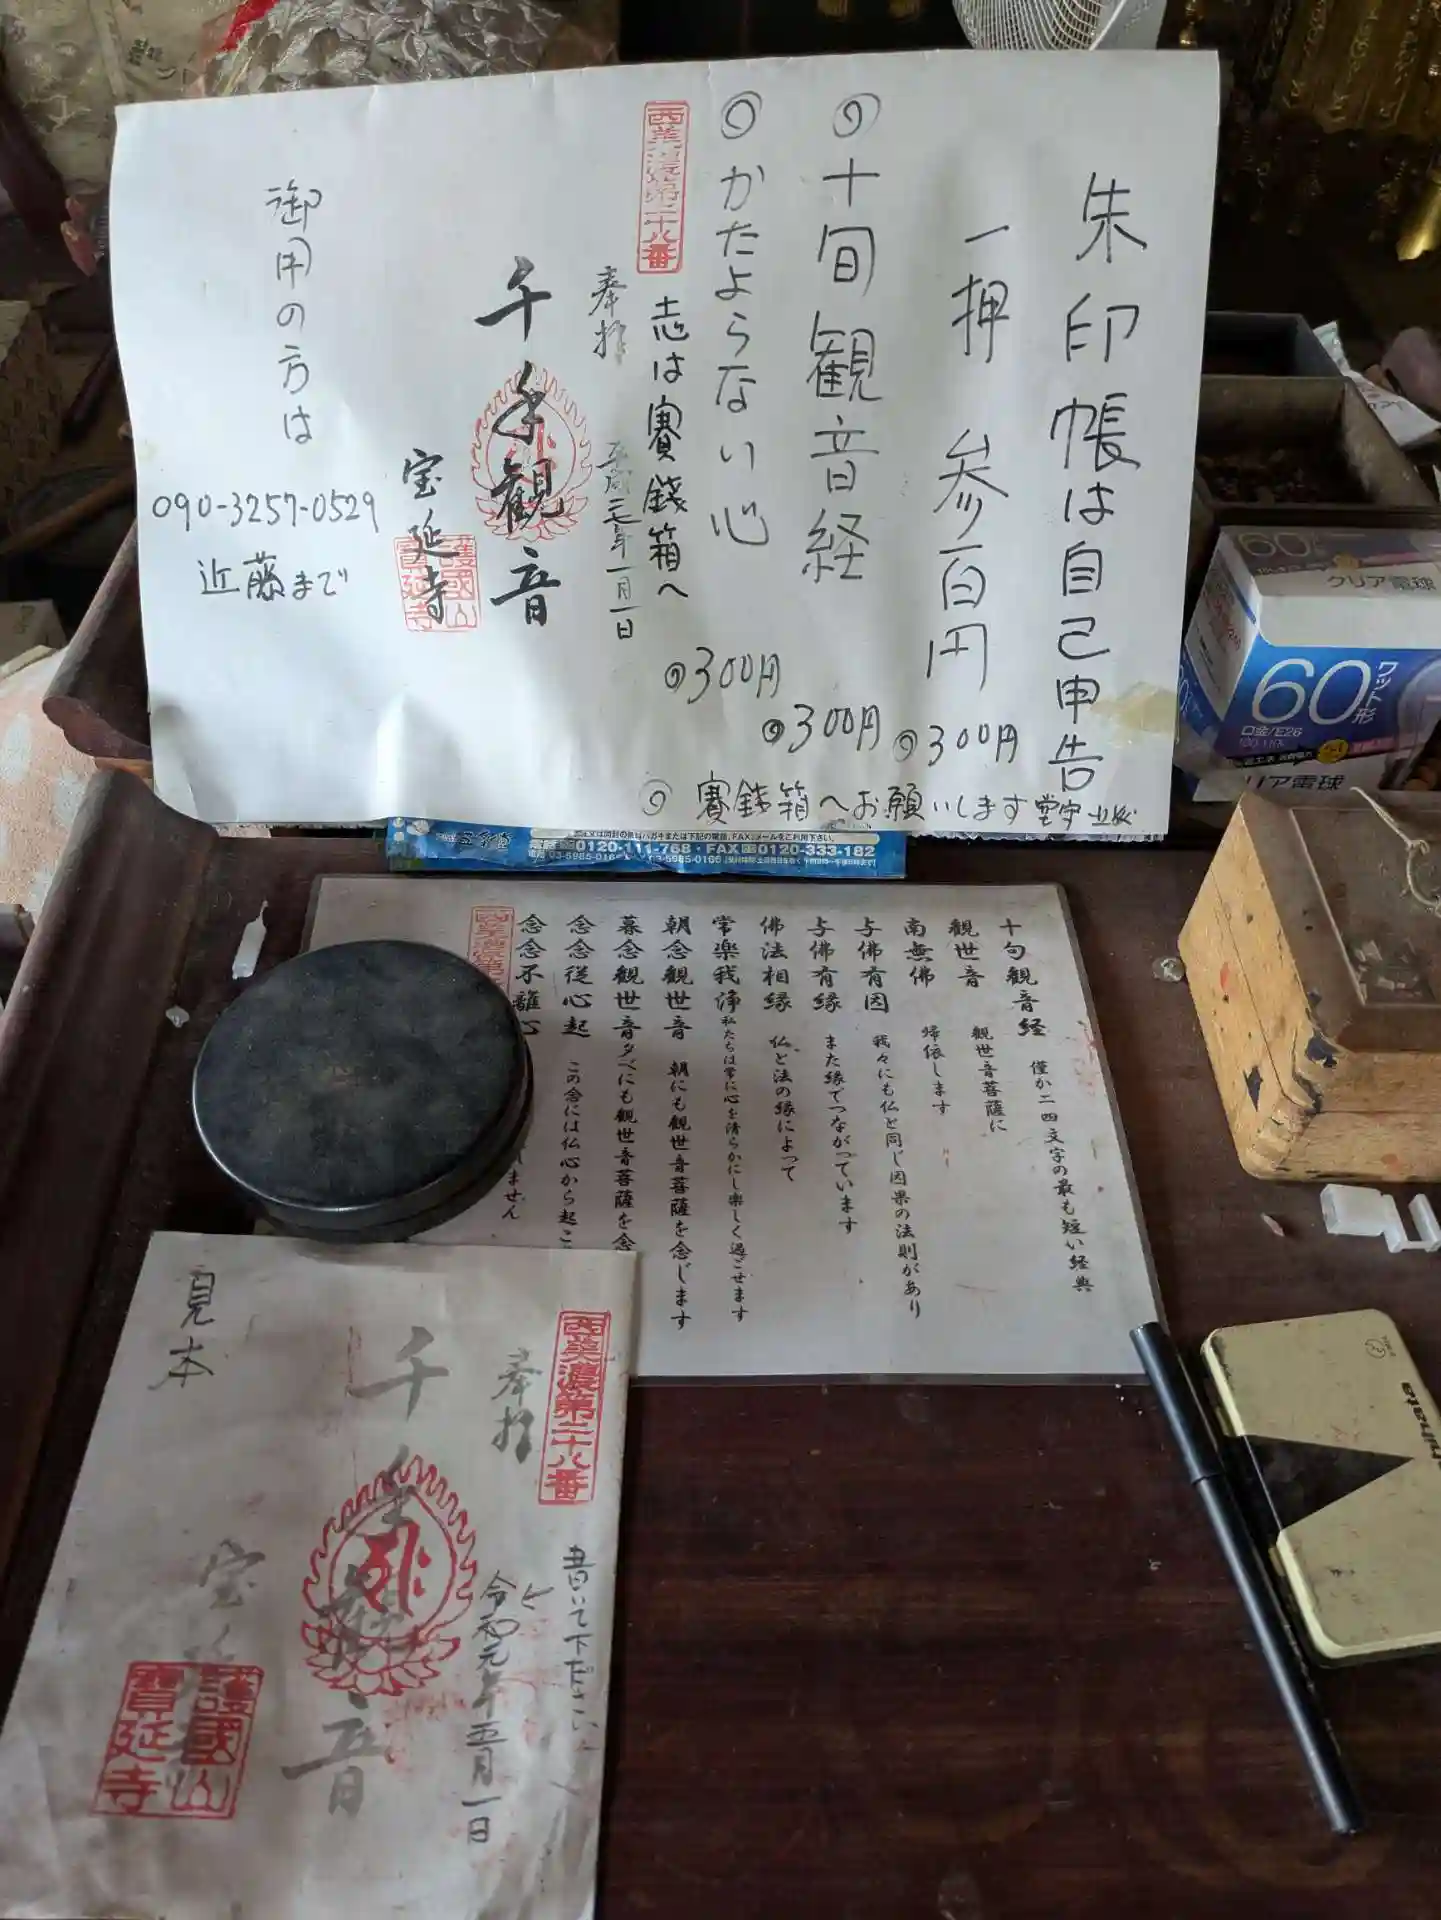 朱印帳は自己申告
一押 参百円
◎300円
◎十旬観音経
◎300円
◎かたよらない心
◎300円
西美濃第二十八番
志は賽銭箱へ
奉拝
二七年一月一日
千手観音
宝延寺
護國山
寶延寺
御用の方は
090-3257-0529
近藤まで
◎賽銭箱へお願いします 堂守
電話 0120-111-768・FAX 0120-333-182
60
クリア電球
60ワット形
口金/E26
リア電球
十句観音経 僅か二四文字の最も短い経典
観世音 観世音菩薩に
南無佛 帰依します
与佛有因 我々にも仏と同じ因果の法則があり
与佛有縁 また縁でつながっています
佛法相縁 仏と法の縁によって
常楽我浄 私たちは常に心を清らかにし楽しく過ごせます
朝念観世音 朝にも観世音菩薩を念じます
暮念観世音 夕べにも観世音菩薩を念
念念従心起 この念には仏心から起こ
念念不離心 ません
西美濃第二
見本
西美濃第二十八番
奉拝
書いて下ださい
令和元年五月一日
千手観音
宝
護國山
寶延寺